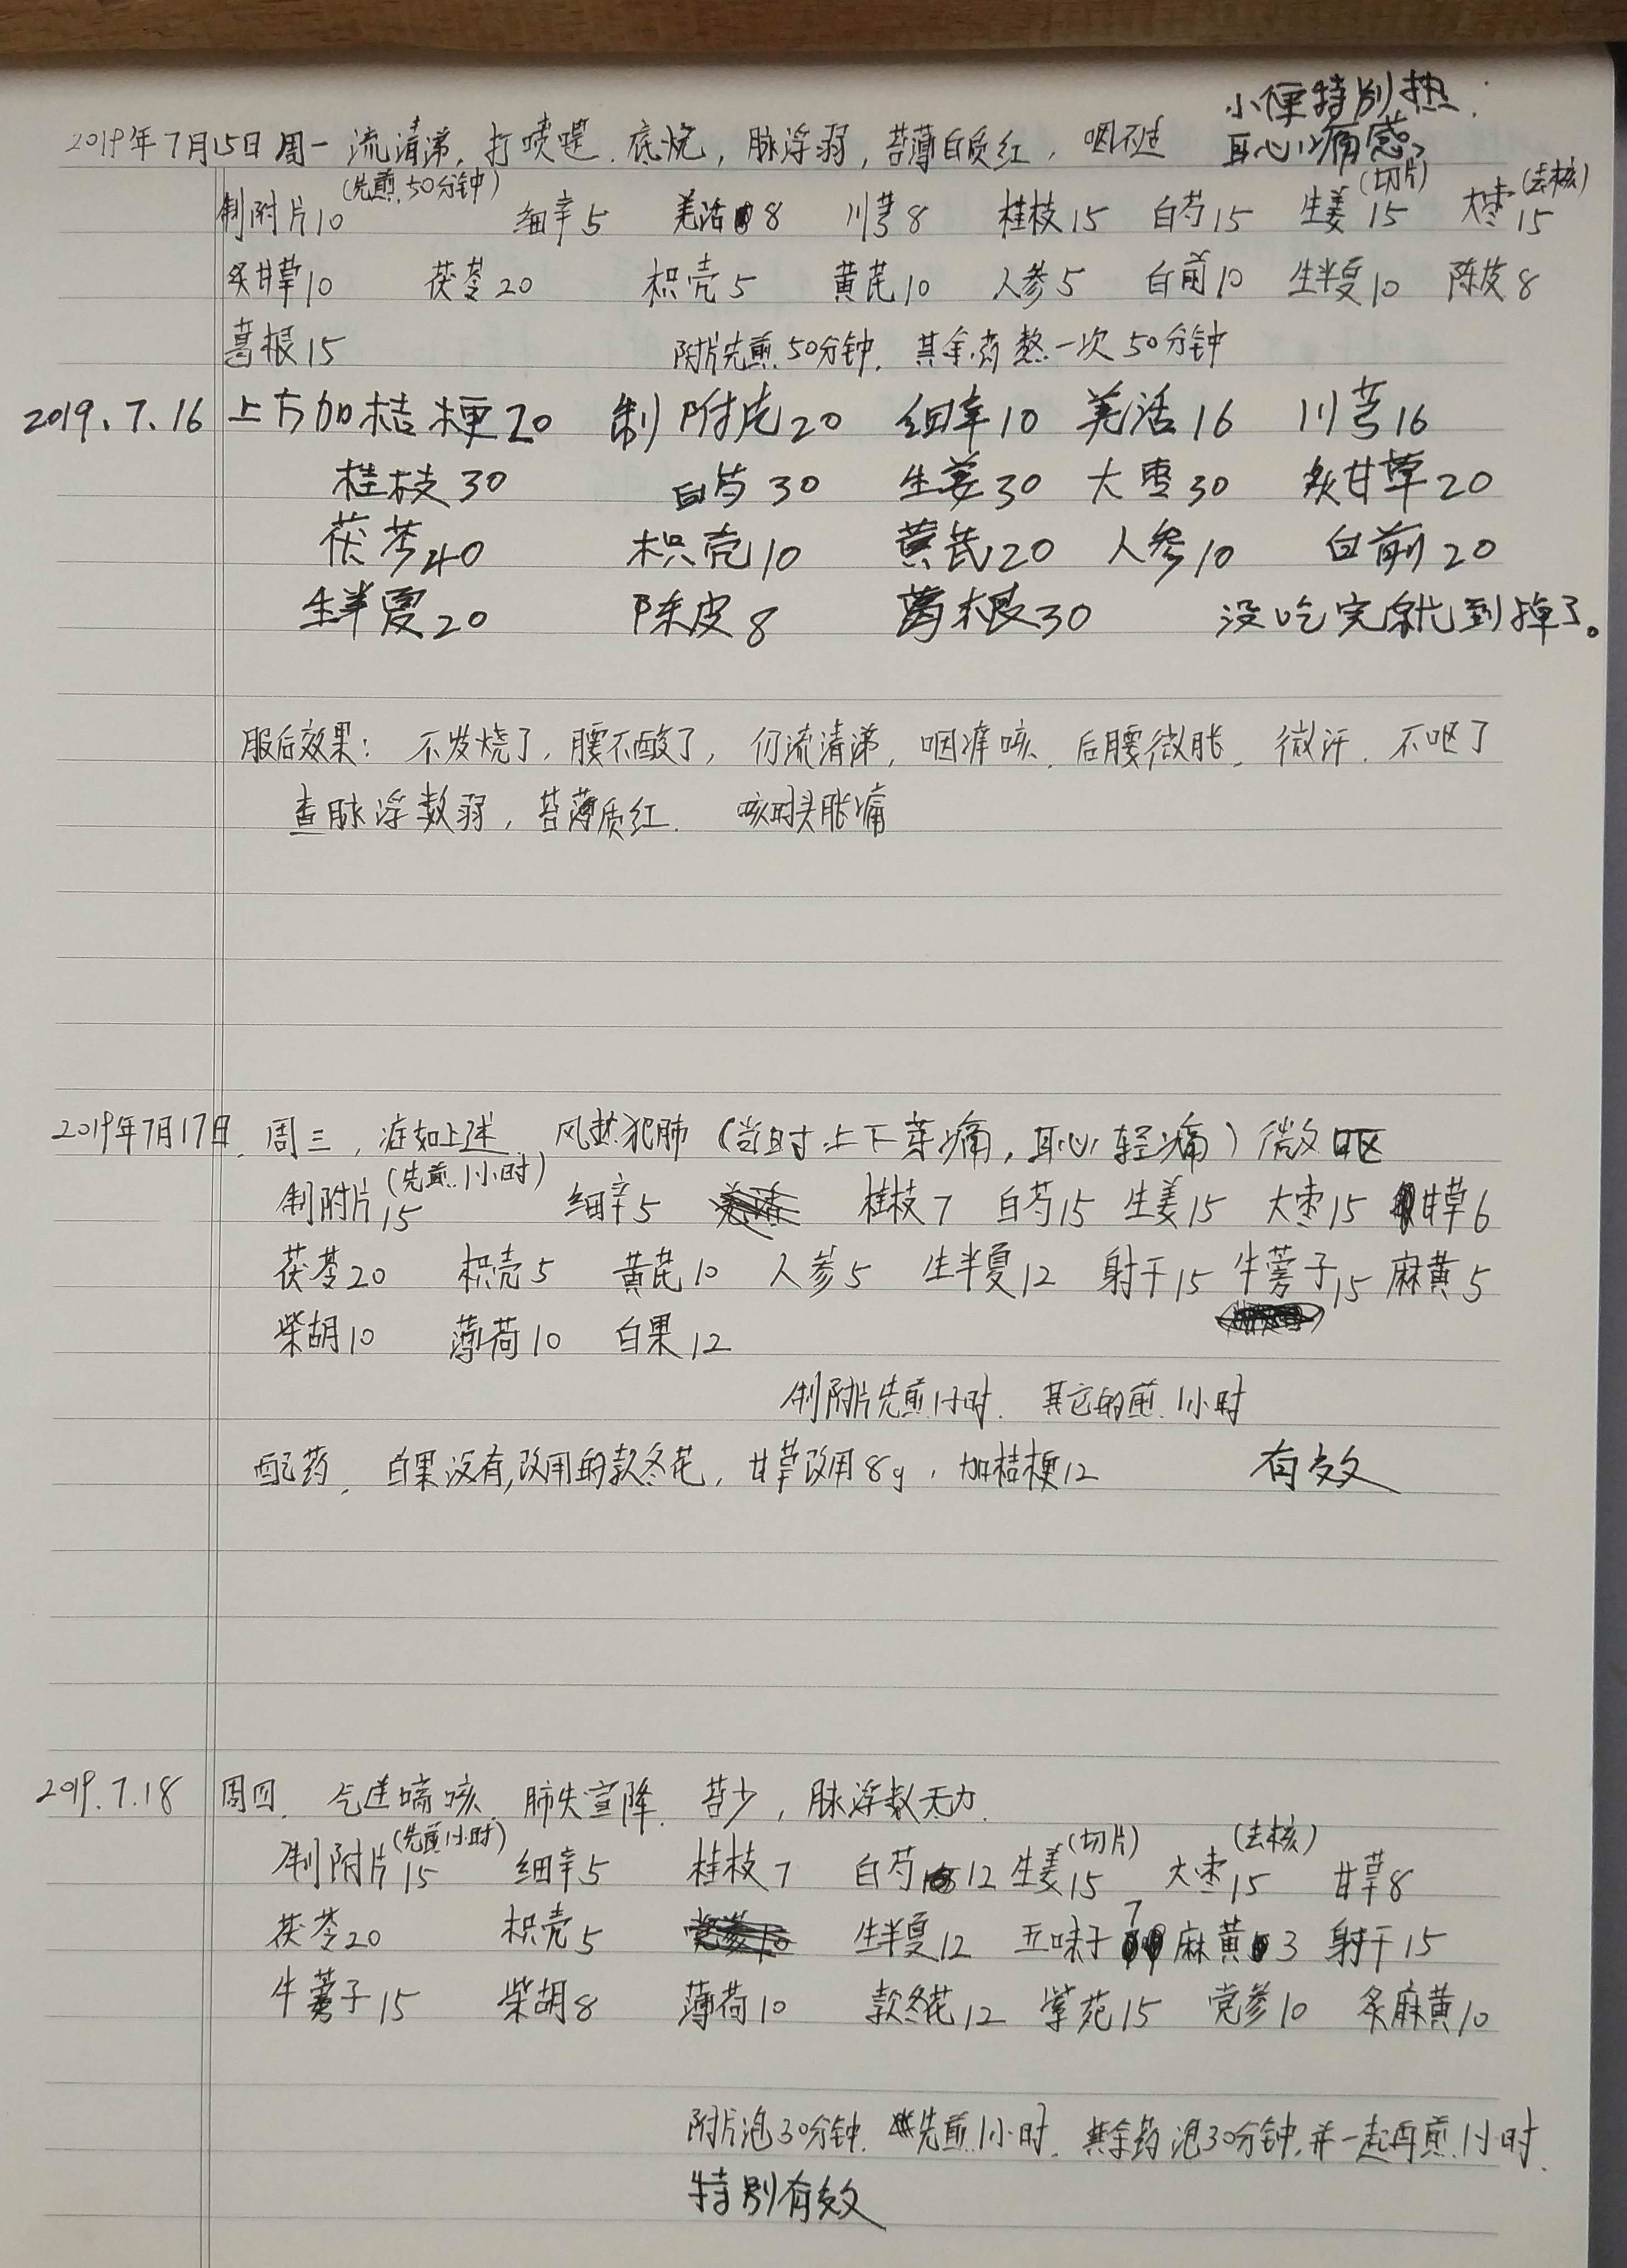 小便特别热.
2019年7月15日周一 流清涕, 打喷嚏. 底烧, 脉浮弱, 苔薄白质红, 咽不适 耳心心痛感?
(先煎.50分钟) (切片) (去核)
制附片10 细辛5 羌活8 川芎8 桂枝15 白芍15 生姜15 大枣15
炙甘草10 茯苓20 枳壳5 黄芪10 人参5 白前10 生半夏10 陈皮8
葛根15 附片先煎50分钟, 其余药熬一次50分钟
2019.7.16 上方加桔梗20 制附片20 细辛10 羌活16 川芎16
桂枝30 白芍30 生姜30 大枣30 炙甘草20
茯苓40 枳壳10 黄芪20 人参10 白前20
生半夏20 陈皮8 葛根30 没吃完就到掉了。
服后效果: 不发烧了, 腰不酸了, 仍流清涕, 咽痒咳. 后腰微胀, 微汗. 不呕了
查脉浮数弱, 苔薄质红. 咳时头胀痛
2019年7月17日. 周三, 症如上述 风热犯肺 (当时上下牙痛, 耳心轻痛) 微呕
(先煎1小时)
制附片15 细辛5 桂枝7 白芍15 生姜15 大枣15 甘草6
茯苓20 枳壳5 黄芪10 人参5 生半夏12 射干15 牛蒡子15 麻黄5
柴胡10 薄荷10 白果12
制附片先煎1小时. 其它的煎1小时
配药, 白果没有,改用的款冬花, 甘草改用8g, 加桔梗12 有效
2019.7.18 周四. 气逆喘咳. 肺失宣降. 苔少, 脉浮数无力.
(先煎1小时) (切片) (去核)
制附片15 细辛5 桂枝7 白芍12 生姜15 大枣15 甘草8
茯苓20 枳壳5 生半夏12 五味子7 麻黄3 射干15
牛蒡子15 柴胡8 薄荷10 款冬花12 紫苑15 党参10 炙麻黄10
附片泡30分钟. 先煎1小时. 其余药泡30分钟, 并一起再煎1小时.
特别有效